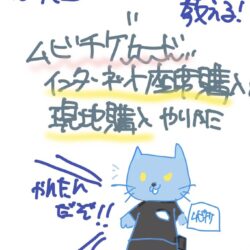 教える!
ムビチケカード
インターネット座席購入
現地購入 やりかた
かんたん
だぞ!!